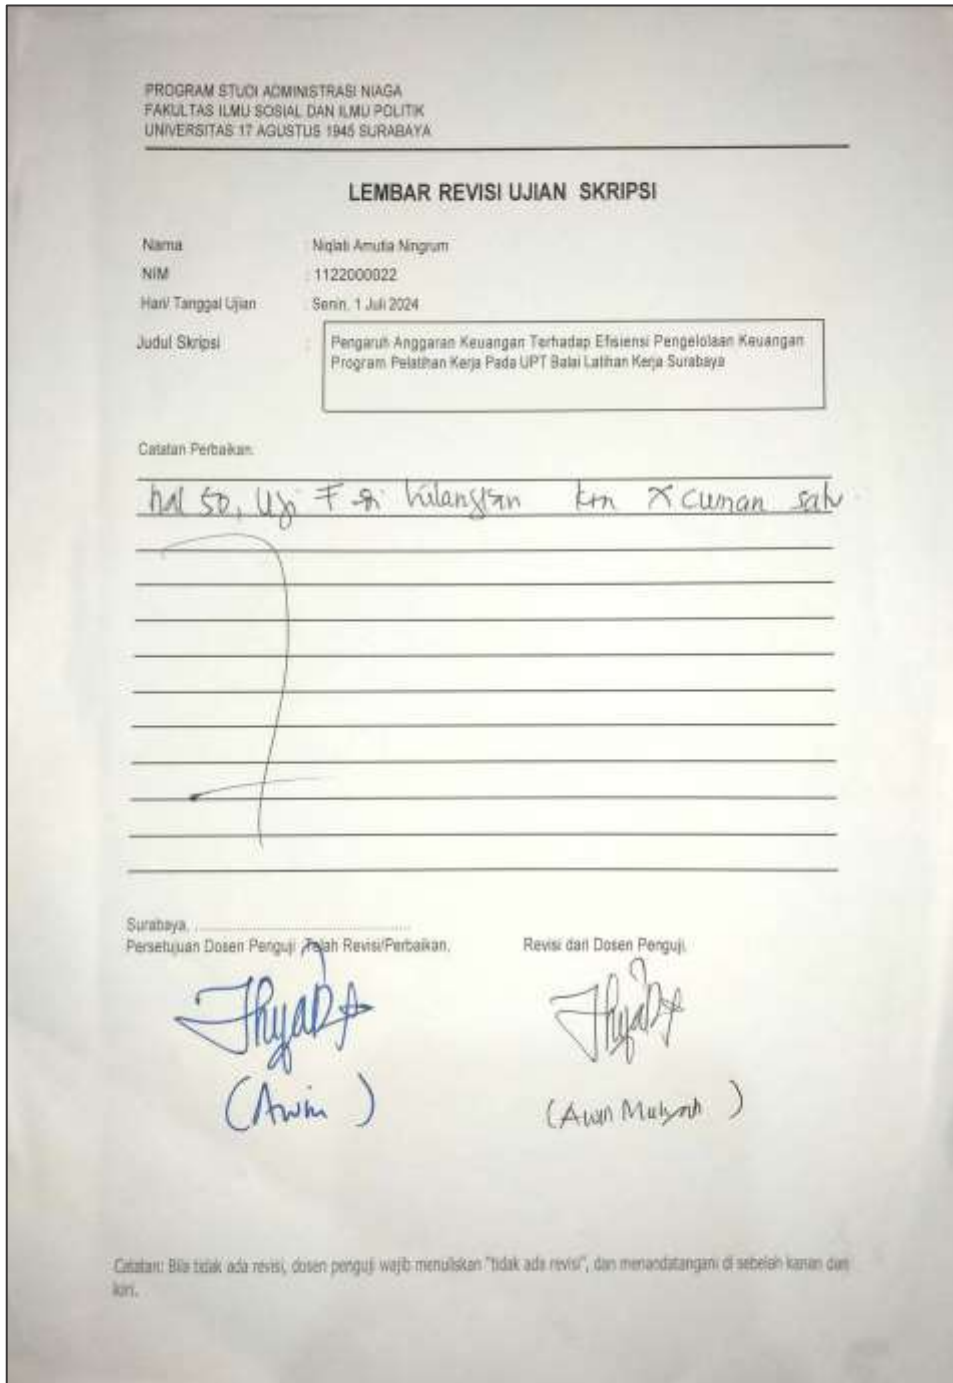 PROGRAM STUDI ADMINISTRASI NIAGA
FAKULTAS ILMU SOSIAL DAN ILMU POLITIK
UNIVERSITAS 17 AGUSTUS 1945 SURABAYA
LEMBAR REVISI UJIAN SKRIPSI
Nama : Niqlati Amutia Ningrum
NIM : 1122000022
Hari/ Tanggal Ujian : Senin, 1 Juli 2024
Judul Skripsi : Pengaruh Anggaran Keuangan Terhadap Efisiensi Pengelolaan Keuangan
Program Pelatihan Kerja Pada UPT Balai Latihan Kerja Surabaya
Catatan Perbaikan:
hal 50, Uji F di hilangkan krn X cuman satu
Surabaya, ..........................................
Persetujuan Dosen Penguji Telah Revisi/Perbaikan, Revisi dari Dosen Penguji,
(Awin ) (Awin Mulyati )
Catatan: Bila tidak ada revisi, dosen penguji wajib menuliskan "tidak ada revisi", dan menandatangani di sebelah kanan dan
kiri.